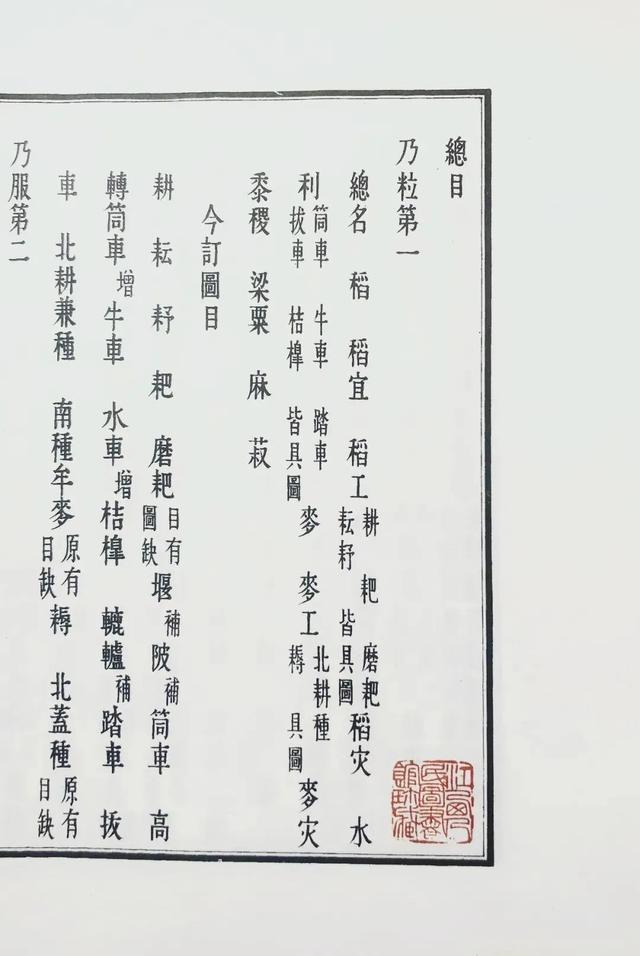 總目
乃粒第一
總名 稻 稻宜 稻工 耕 耙 磨耙 耘耔 皆具圖 稻灾 水
利 筒車 牛車 踏車 拔車 桔槹 皆具圖 麥 麥工 北耕種 耨 具圖 麥灾
黍稷 梁粟 麻 菽
今訂圖目
耕 耘 耔 耙 磨耙 目有圖缺 堰 補 陂 補 筒車 高
轉筒車 增 牛車 水車 增 桔槹 轆轤 補 踏車 拔
車 北耕兼種 南種牟麥 原有目缺 耨 北蓋種 原有目缺
乃服第二